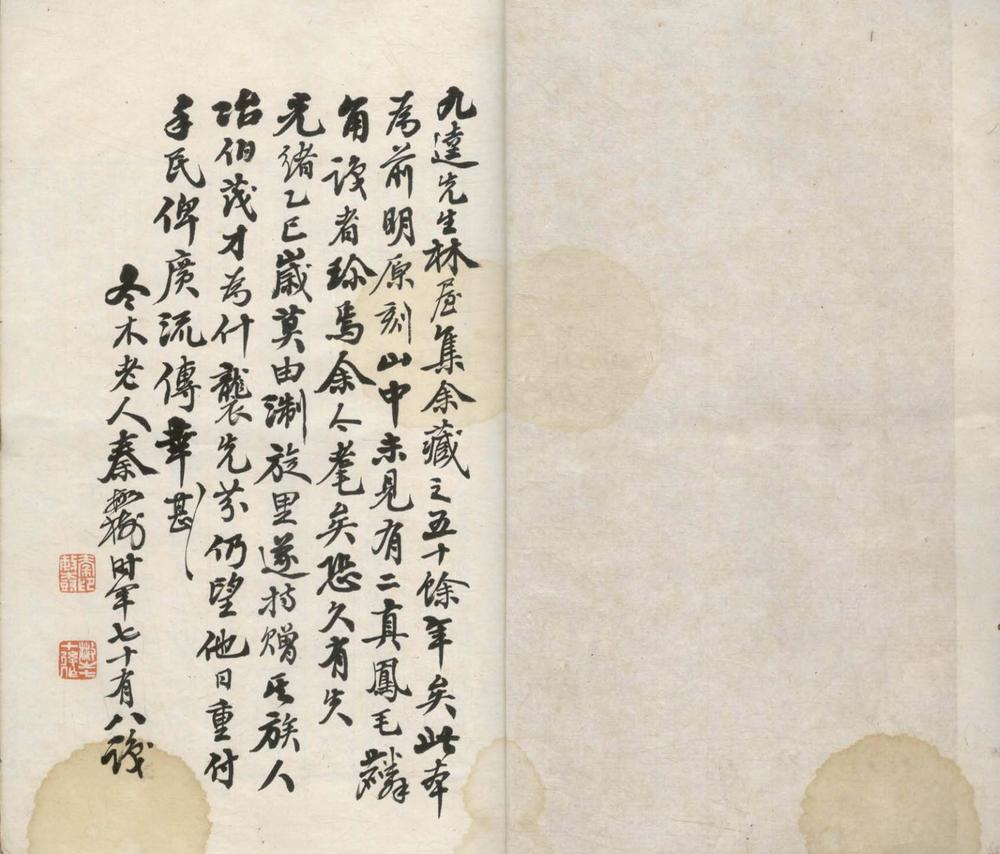 九逵先生林屋集余藏之五十餘年矣此本
為前明原刻山中未見有二真鳳毛麟
角識者珎焉余今耄矣恐久有失
光緒乙巳歲莫由淛旋里遂持贈其族人
伯茂才為什襲先芬仍望他日重付
手民俾廣流傳幸甚
冬木老人秦敏樹時年七十有八識